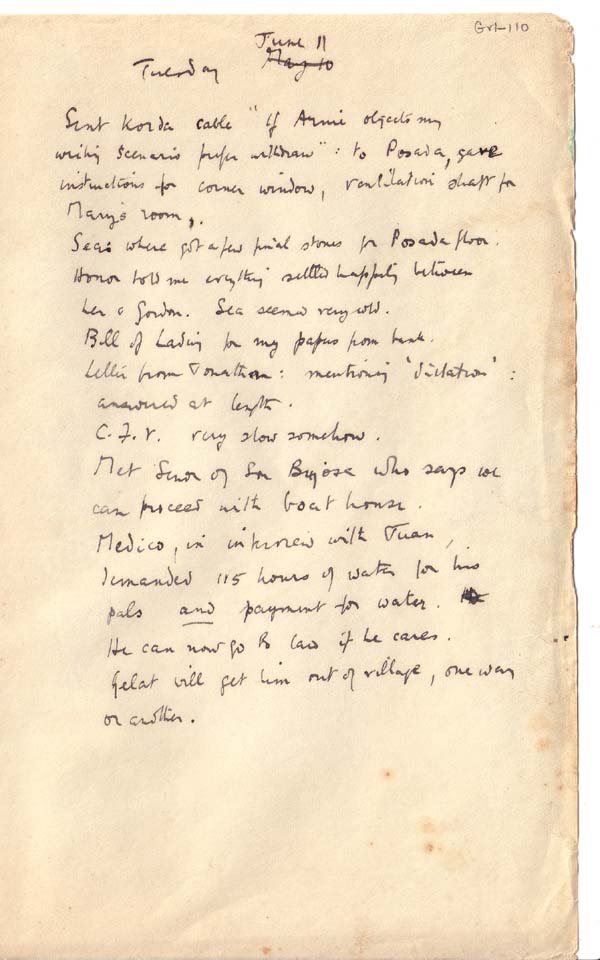 GrI-110
June 11
Tuesday May 10
Sent Korda cable "if Arnie objects my
writing scenario prefer withdraw": to Posada, gave
instructions for corner window, ventilation shaft for
Mary's room,.
Sea: where got a few final stones for Posada floor.
Honor told me everything settled happily between
her & Gordon. Sea seemed very cold.
Bill of Lading for my papers from bank.
Letter from Jonathan: mentioning "dictation":
answered at length.
very slow somehow.
Met Senor of Son Bujosa who says we
can proceed with boat house.
Medico, in interview with Juan,
demanded 115 hours of water for his
pals and payment for water.
He can now go to law if he cares.
Gelat will get him out of village, one way
or another.